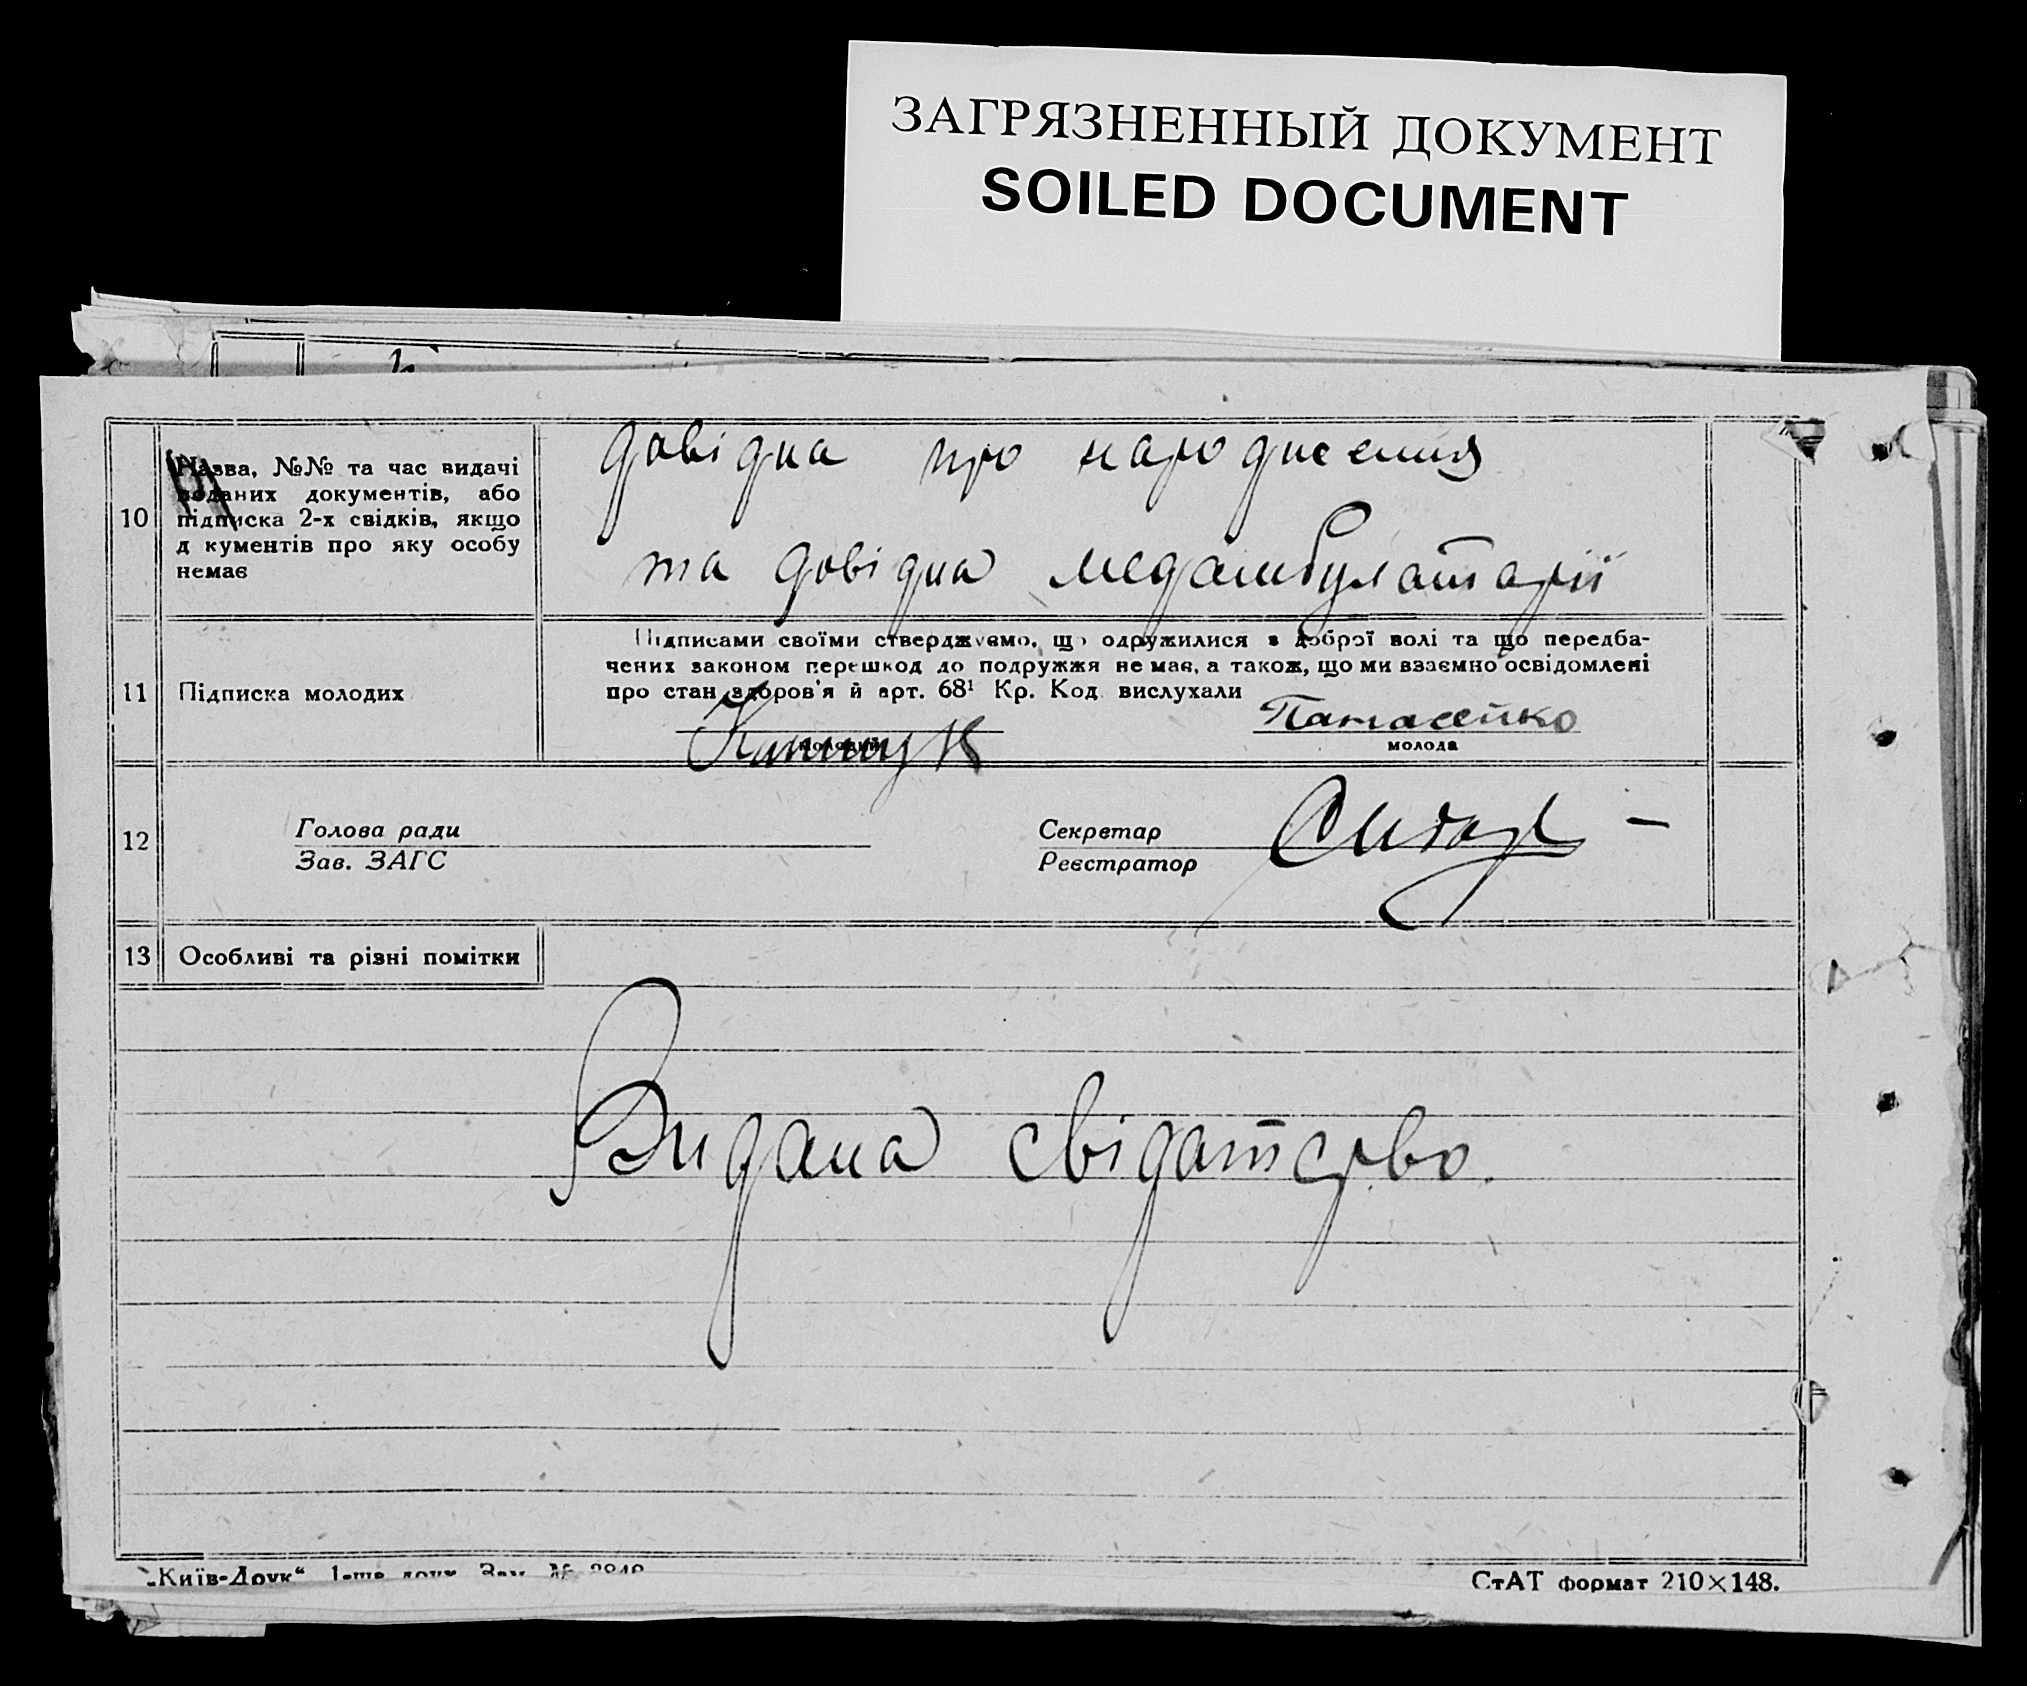 ЗАГРЯЗНЕННЫЙ ДОКУМЕНТ
SOILED DOCUMENT
10
Назва, №№ та час видачі
поданих документів, або
підписка 2-х свідків, якщо
д кументів про яку особу
немає
довідка про народження
та довідка медамбулаторії
11
Підписка молодих
Підписами своїми стверджуємо, що одружилися з доброї волі та що передба-
чених законом перешкод до подружжя немає, а також, що ми взаємно освідомлені
про стан здоров'я й арт. 68¹ Кр. Код. вислухали
молодий
молода
12
Голова ради
Зав. ЗАГС
Секретар
Реєстратор
13
Особливі та різні помітки
Видана свідатство.
„Київ-Друк“ 1-ша друк. Зам. №
СтАТ формат 210×148.